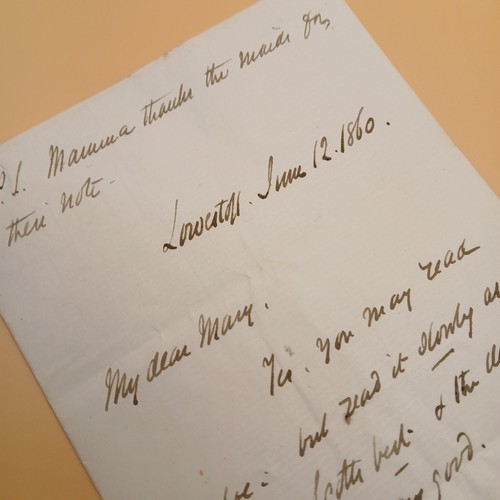 P.S. Mamma thanks the maids for
their note.
Lowestoft. June 12. 1860.
My dear Mary.
Yes. You may read
but read it slowly
& the
good.